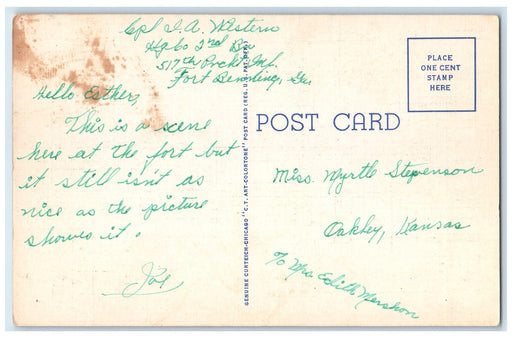 Cpl I. A. Western
Hq Co 2nd Bn
517th Prcht Inf.
Fort Benning, Ga.
Hello Esther,
This is a scene
here at the fort but
it still isn't as
nice as the picture
shows it.
Joe
GENUINE CURTEICH-CHICAGO "C.T. ART-COLORTONE" POST CARD (REG. U.S. PAT. OFF.)
POST CARD
PLACE
ONE CENT
STAMP
HERE
Miss. Myrtle Stevenson
Oakley, Kansas
% Mrs Edith Mershon